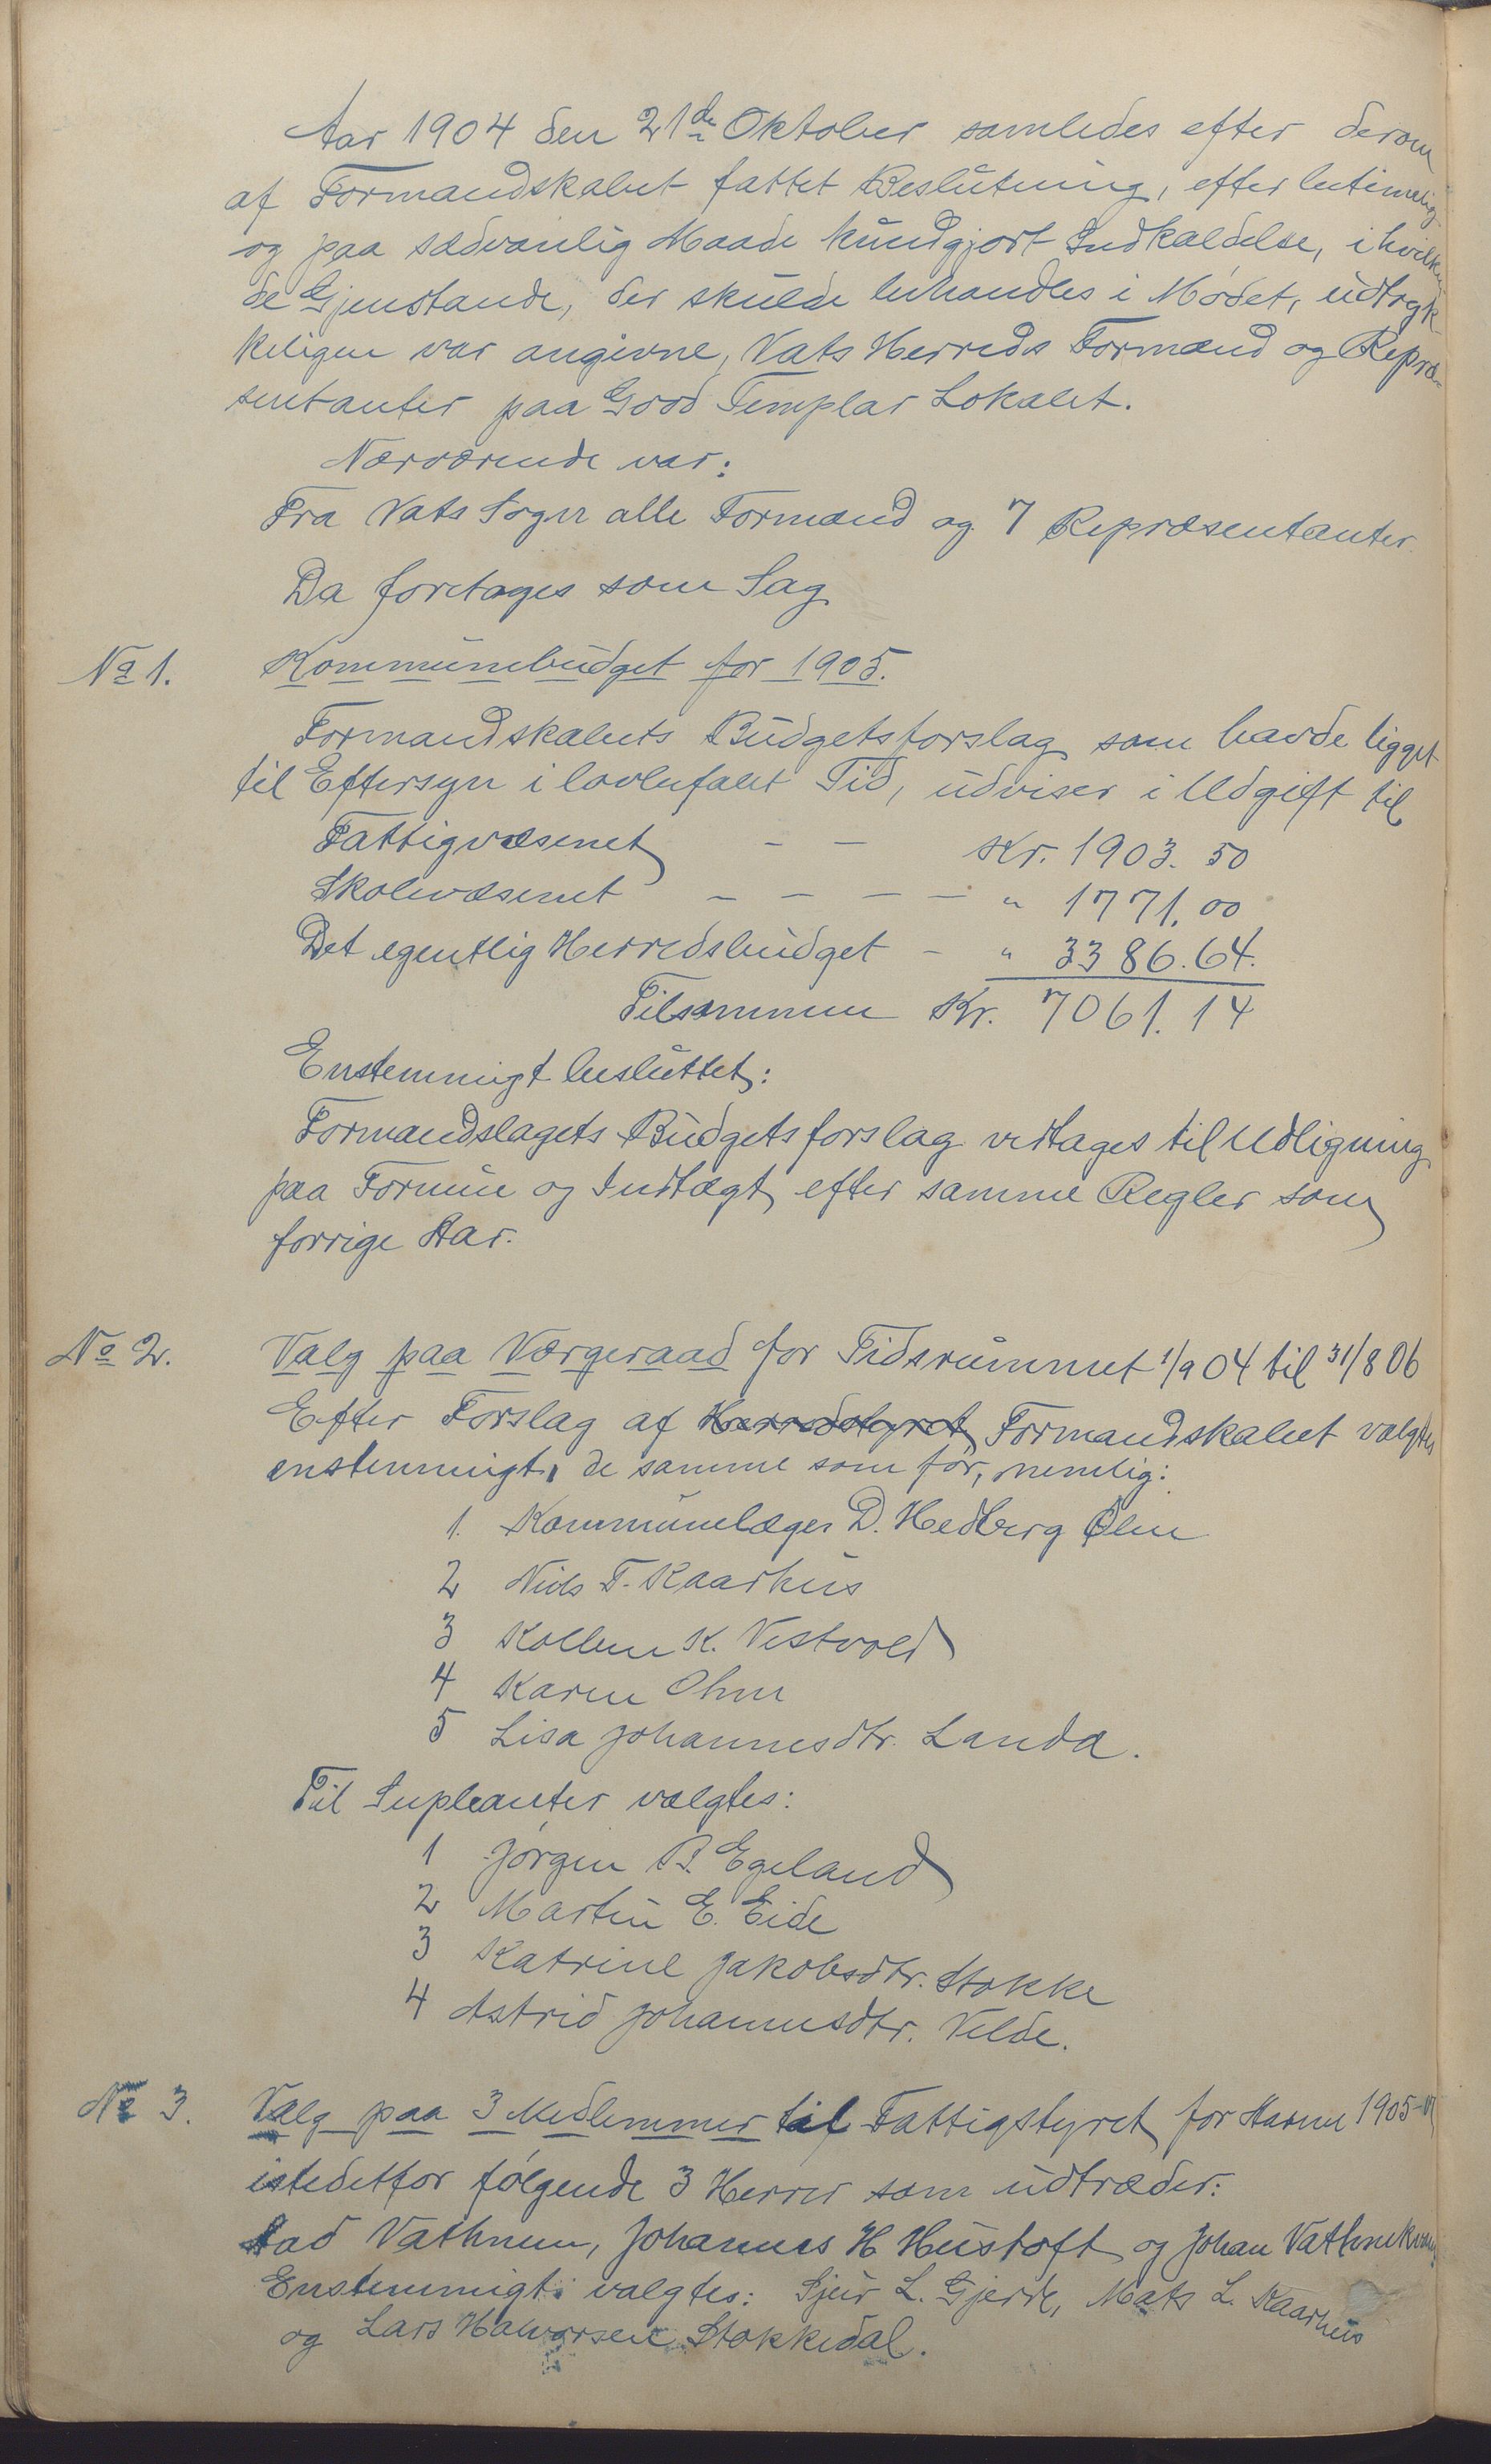 Aar 1904 den 21de Oktober samledes efter derom
af Formandskabet fattet Beslutning, efter betimelig
og paa sædvanlig Maade kundgjort Indkaldelse, i hvilken
de Gjenstande, der skulde behandles i Mødet, udtryk
keligen var angivne, Vats Herreds Formænd og Repræ-
sentanter paa Good Templar Lokalet.
Nærværende var:
Fra Vats Sogn alle Formænd og 7 Repræsentanter.
Da foretages som Sag
No 1. Kommunebudget for 1905.
Formandskabets Budgetsforslag som havde ligget
til Eftersyn i lovbefalet Tid, udviser i Udgift til
Fattigvæsenet - - Kr. 1903. 50
Skolevæsenet - - - - " 1771. 00
Det egentlig Herredsbudget - " 3386.64.
Tilsammen Kr. 7061. 14
Enstemmigt besluttet:
Formandslagets Budgetsforslag vedtages til Udligning
paa Formue og Indtægt efter samme Regler som
forrige Aar.
No 2. Valg paa Værgeraad for Tidsrummet 1/9 04 til 31/8 06
Efter Forslag af Herredstyret Formandskabet valgtes
enstemmigt de samme som før, nemlig:
1. Kommunelæge D. Hedberg Ølen
2 Niels T. Kaarhus
3 Kolben K. Vestvold
4 Karen Ohm
5 Lisa Johannesdtr. Landa.
Til Supleanter valgtes:
1 Jørgen B. Egeland
2 Martin E. Eide
3 Katrine Jakobsdtr. Stokke
4 Astrid Johannesdtr. Velde.
No 3. Valg paa 3 Medlemmer til Fattigstyret for Aarene 1905-07
istedetfor følgende 3 Herrer som udtræder:
Aad Vathnem, Johannes H Hustoft og Johan
Enstemmigt valgtes: Sjur L. Gjerde, Mats L. Kaarhus
og Lars Halvorsen Stokkedal.